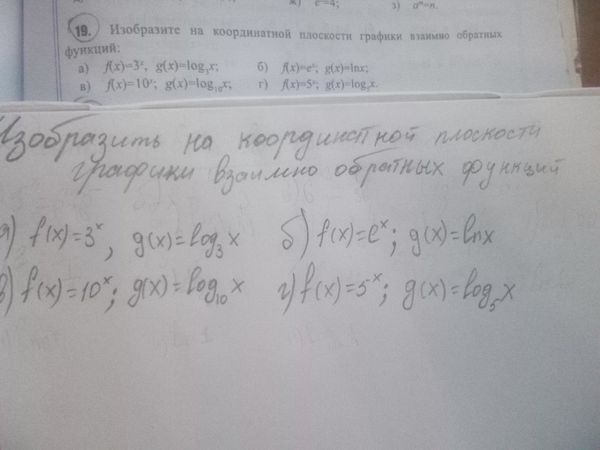 ж) eˣ=4; з) aᵐ=n.
19. Изобразите на координатной плоскости графики взаимно обратных
функций:
а) f(x)=3ˣ, g(x)=log₃x; б) f(x)=eˣ; g(x)=lnx;
в) f(x)=10ˣ; g(x)=log₁₀x; г) f(x)=5ˣ; g(x)=log₅x.
Изобразить на координатной плоскости
графики взаимно обратных функций
а) f(x)=3ˣ, g(x)=log₃x б) f(x)=eˣ; g(x)=lnx
в) f(x)=10ˣ; g(x)=log₁₀x г) f(x)=5ˣ; g(x)=log₅x